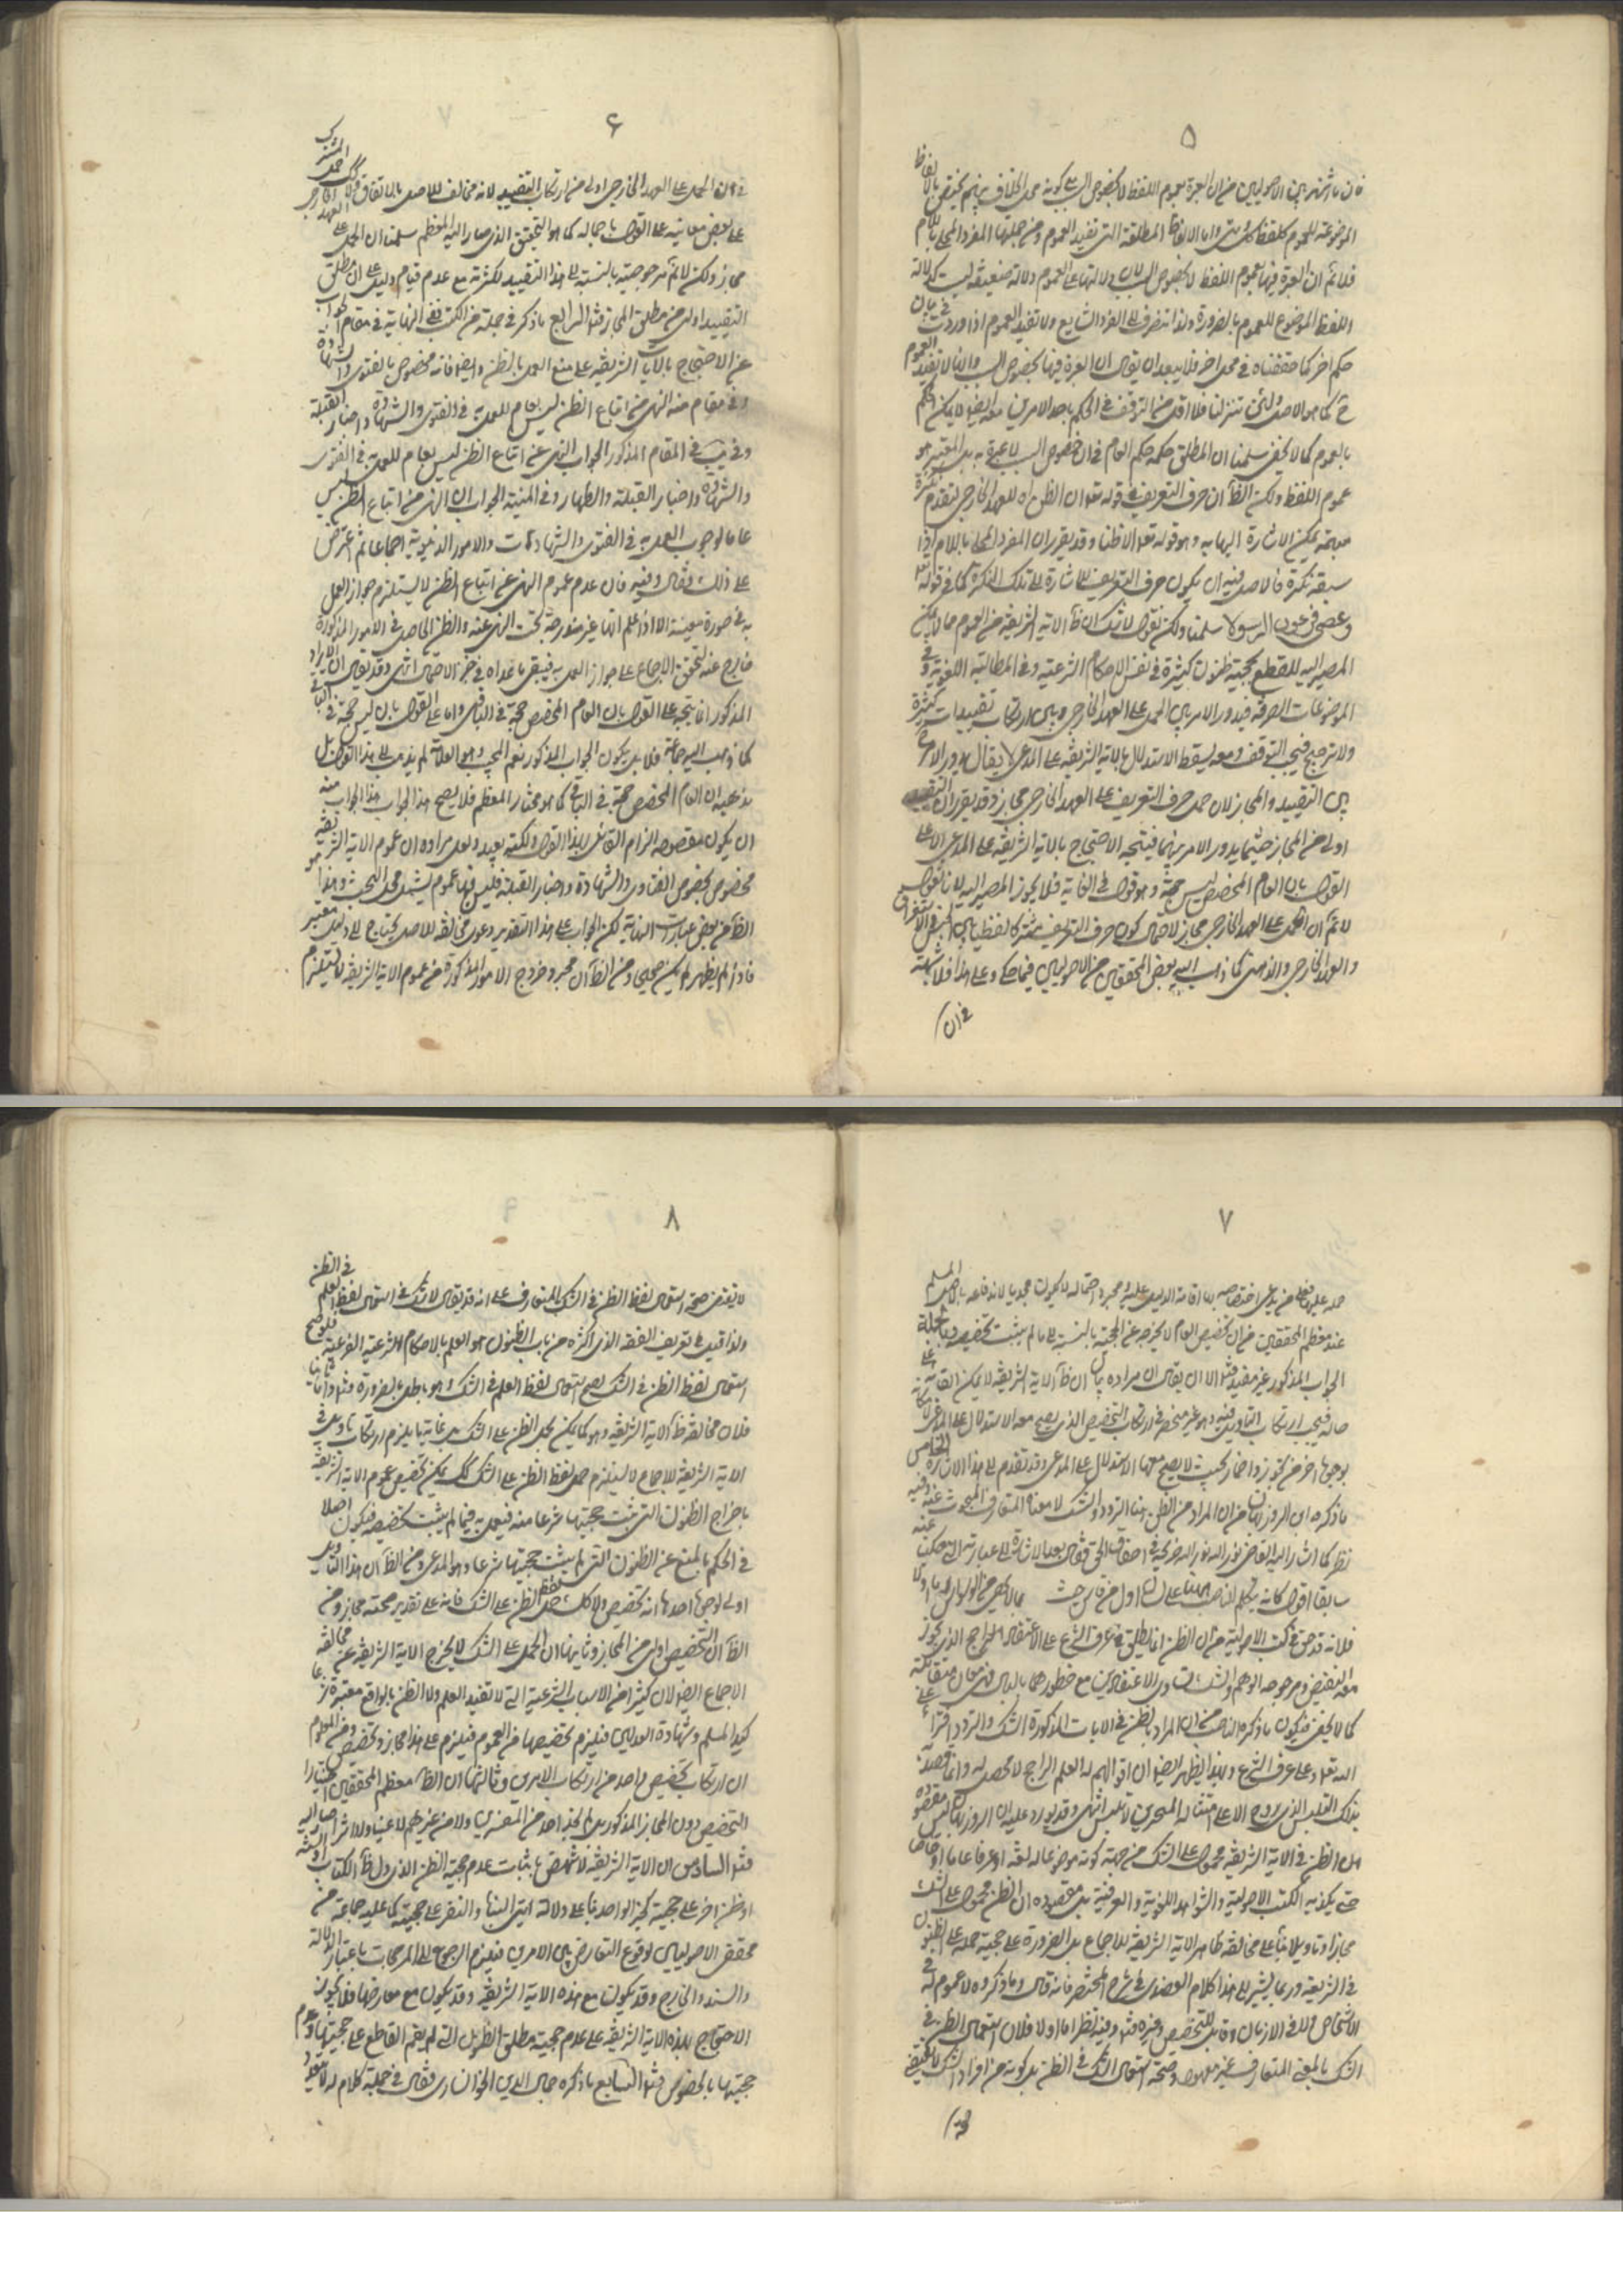 ٥
فان ما اشتهر بين الاصوليين من ان العبرة بعموم اللفظ لا بخصوص السبب على كونه محل الخلاف بينهم يختص بالالفاظ
الموضوعة للعموم كلفظ كل ومتى واما الالفاظ المطلقة التي تفيد العموم ومن جملتها المفرد المحلى باللام
فلا نم ان العبرة فيها بعموم اللفظ لا بخصوص السبب لان دلالتها على العموم دلالة ضعيفة ليست كدلالة
اللفظ الموضوع للعموم بالضرورة ولذا تنصرف الى الفرد الشايع ولا تفيد العموم اذا وردت في بيان
حكم اخر كما حققناه في محل اخر فلا يبعد ان يقال ان العبرة فيها بخصوص السبب وانها لا تفيد العموم
ح كما هو الاصل ولئن تنزلنا فلا اقل من التوقف في الحكم باحد الامرين ومعه ايضا لا يمكن الحكم
بالعموم كما لا يخفى سلمنا ان المطلق حكمه حكم العام في ان خصوص السبب لا عبرة به بل المعتبر هو
عموم اللفظ ولكن الظ ان حرف التعريف في قوله تعالى ان الظن اه للعهد الخارجي لتقدم نكرة
يمكن الاشارة اليها به وهو قوله تعالى الا ظنا وقد تقرر ان المفرد المحلى باللام اذا
سبقه نكرة فالاصل فيه ان يكون حرف التعريف للاشارة الى تلك النكرة كما في قوله تعالى
وعصى فرعون الرسول سلمنا ولكن نقول لا شك ان ظ الاية الشريفة من العموم مما لا يمكن
المصير اليه للقطع بحجية ظنون كثيرة في نفس الاحكام الشرعية وفي المطالب اللغوية وفي
الموضوعات الصرفة فيدور الامر بين الحمل على العهد الخارجي وبين ارتكاب تقييدات كثيرة
ولا ترجيح فيجب التوقف ومعه يسقط الاستدلال بالاية الشريفة على المدعى لا يقال يدور الامر ح
بين التقييد والمجاز لان حمل حرف التعريف على العهد الخارجي مجاز وقد تقرر ان التقييد
اولى من المجاز حيثما يدور الامر بينهما فيتجه الاحتجاج بالاية الشريفة على المدعى الا على
القول بان العام المخصص ليس حجة وهو قول في الغاية فلا يجوز المصير اليه لانا نقول
لا نم ان الحمل على العهد الخارجي مجاز لاحتمال كون حرف التعريف مشتركا لفظيا بين الجنس والاستغراق
والعهد الخارجي والذهني كما ذهب اليه بعض المحققين من الاصوليين فيما حكي وعلى هذا فلا شبهة
في ان
٦
في ان الحمل على العهد الخارجي اولى من ارتكاب التقييد لانه مخالف للاصل بالاتفاق ولا كك حمل المشترك
على بعض معانيه على القول باجماله كما هو التحقيق الذي صار اليه المعظم سلمنا ان الحمل على العهد الخارجي
مجاز ولكن لا نم مرجوحيته بالنسبة الى هذا التقييد لكثرته مع عدم قيام دليل على ان مطلق
التقييد اولى من مطلق المجاز ومنها الرابع ما ذكر في جملة من الكتب ففي النهاية في مقام الجواب
عن الاحتجاج بالايات الشريفة على منع العمل بالظن وايضا فانه مخصوص بالفتوى والشهادة
وفي مقام منه النهي من اتباع الظن ليس بعام للعمل به في الفتوى والشهادة واخبار القبلة
وفي يب في المقام المذكور الجواب النهي عن اتباع الظن ليس بعام للعمل به في الفتوى
والشهادة واخبار القبلة والطهارة وفي المنية الجواب ان النهي من اتباع الظن ليس
عاما لوجوب العمل به في الفتوى والشهادات والامور الدنيوية اجماعا ثم اعترض
على ذلك فقال وفيه فان عدم عموم النهي عن اتباع الظن لا يستلزم جواز العمل
به في صورة معينة الا اذا علم انها غير مندرجة تحت النهي عنه والظن الحاصل في الامور المذكورة
خارج عنه لتحقق الاجماع على جواز العمل به فيبقى ما عداه في حيز الاحتمال انتهى وقد يقال ان الايراد
المذكور انما يتجه على القول بان العام المخصص حجة في الباقي واما على القول بان ليس حجة في الباقي
كما ذهب اليه جماعة فلا بل يكون الجواب المذكور نعم المجيب وهو العلامة لم يذهب الى هذا القول بل
مذهبه ان العام المخصص حجة في الباقي كما هو مختار المعظم فلا يصح هذا الجواب منه
ان يكون مقصوده الزام القائل بهذا القول ولكنه بعيد ولعل مراده ان عموم الاية الشريفة
مخصوص بخصوص الفتاوى والشهادة واخبار القبلة فليس فيها عموم يشمل محل البحث وهذا هو
الظ من بعض عبارات النهاية لكن الجواب على هذا التقدير دعوى مخالفة للاصل يحتاج الى دليل معتبر
فاذا لم يظهر لم يكن صحيحا ومن الظ ان مجرد خروج الامور المذكورة من عموم الاية الشريفة لا يستلزم
٧
حمله عليها فعلى من يدعي اختصاصه بها اقامة الدليل عليه ومجرد احتماله لا يكون مجديا لاندفاعه بالاصل المسلم
عند معظم المحققين من ان تخصيص العام لا يخرجه عن الحجية بالنسبة الى ما لم يثبت تخصيصه وبالجملة
الجواب المذكور غير مفيد ومنها الا ان يقال ان مراده بيان ان ظ الاية الشريفة لا يمكن ابقائه على
حاله فيجب ارتكاب التاويل فيه وهو غير منحصر في ارتكاب التخصيص الذي يصح معه الاستدلال على المدعى لامكانه
بوجوه اخر من تجوز واضمار بحيث لا يصح معها الاستدلال على المدعى وقد تقدم الى هذا الاشارة الخامس
ما ذكره ابن الروزبهان من ان المراد من الظن هنا التردد والشك لا معناه المتعارف المبحوث عنه وفيه
نظر كما اشار اليه القاضي نور الله نور الله ضريحه في احقاق الحق فقال بعد الاشارة الى عبارته التي حكيت عنه
سابقا اقول كانه يتكلم الناصب هيهنا على
فلانه قد حقق في كتب الاصولية من ان الظن انما يطلق في عرف الشرع على الاعتقاد الراجح الذي يجوز
معه النقيض ومرجوحه الوهم والشك تساوي الاعتقادين مع خطورهما بالبال فهي معان متقابلة
كما لا يخفى فيكون ما ذكره الناصب من ان المراد بالظن في الايات المذكورة الشك والتردد افتراء على
الله تعالى وعلى عرف الشرع وبهذا يظهر ايضا ان اقوالهم له العلم الراجح لا محصل له وانما قصد
بذلك التلبيس الذي يروج الا على امثاله المتحيرين تلبس انتهى وقد يورد عليه ان الروزبهان ليس مقصوده
ان الظن في الاية الشريفة محمول على الشك من جهة كونه موضوعا له لغة او عرفا عاما او خاصا
حتى يكذبه الكتب الاصولية والشواهد اللغوية والعرفية بل مقصوده ان الظن محمول على الشك
مجازا وتاويلا بناء على مخالفة ظاهر الاية الشريفة للاجماع بل الضرورة على حجية جملة من الظنون
في الشريعة وربما يشير الى هذا كلام العضدي في شرح المختصر فانه قال وما ذكروه لا عموم له في
الاشخاص ولا في الازمان وقابل للتخصيص وغيره ومنها وفيه نظر اما اولا فلان استعمال الظن في
الشك بالمعنى المتعارف غير معهود وصحة استعمال الشك في الظن بل كونه من افراد الشك لا يقتضي
صحة
٨
لا يقتضي صحة استعمال لفظ الظن في الشك بالمتعارف على انه قد يقال لا شك في استعمال لفظ العلم في الظن
ولذا قيل في تعريف الفقه الذي اكثره من باب الظنون هو العلم بالاحكام الشرعية الفرعية فلو صح
استعمال لفظ الظن في الشك لصح استعمال لفظ العلم في الشك وهو باطل بالضرورة ومنها واما ثانيا
فلان مخالفة ظ الاية الشريفة وهو كما يمكن بحمل الظن على الشك بل غاية ما يلزم ارتكاب تاويل في
الاية الشريفة للاجماع لا يستلزم حمل لفظ الظن على الشك كك يمكن تخصيص عموم الاية الشريفة
باخراج الظنون التي ثبت حجيتها شرعا منه فيعمل به فيما لم يثبت تخصيصه فيكون اصلا
في الحكم بالمنع عن الظنون التي لم يثبت حجيتها شرعا وهو المدعى ومن الظ ان هذا التاويل
اولى لوجوه احدها انه تخصيص ولا كك حمل لفظ الظن على الشك فانه على تقدير صحته مجاز ومن
الظ ان التخصيص اولى من المجاز وثانيها ان الحمل على الشك لا يخرج الاية الشريفة عن مخالفة
الاجماع ايضا لان كثيرا من الاسباب الشرعية التي لا تفيد العلم ولا الظن بالواقع معتبرة شرعا
كيد المسلم وشهادة العدلين فيلزم تخصيصها من العموم فيلزم على هذا مجاز وتخصيص ومن المعلوم
ان ارتكاب تخصيص واحد من ارتكاب الامرين وثالثها ان الظ معظم المحققين اختيار
التخصيص دون المجاز المذكور بل لم نجد احدا من المفسرين ولا من غيرهم لا عينا ولا اثرا صار اليه
ومنها السادس ان الاية الشريفة لا تنهض باثبات عدم حجية الظن الذي دل ظ الكتاب او السنة
او ظن اخر على حجية كخبر الواحد بناء على دلالة ايتي النبا والنفر على حجيته كما عليه جماعة من
محققي الاصوليين لوقوع التعارض بين الامرين فيلزم الرجوع الى المرجحات باعتبار الدلالة
والسند والخارج وقد يكون مع هذه الاية الشريفة وقد يكون مع معارضها فلا يجوز
الاحتجاج بهذه الاية الشريفة على عدم حجية مطلق الظنون التي لم يقم القاطع على حجيتها وعدم
حجيتها بالخصوص ومنها السابع ما ذكره جمال الدين الخوانساري فقال في جملة كلام له